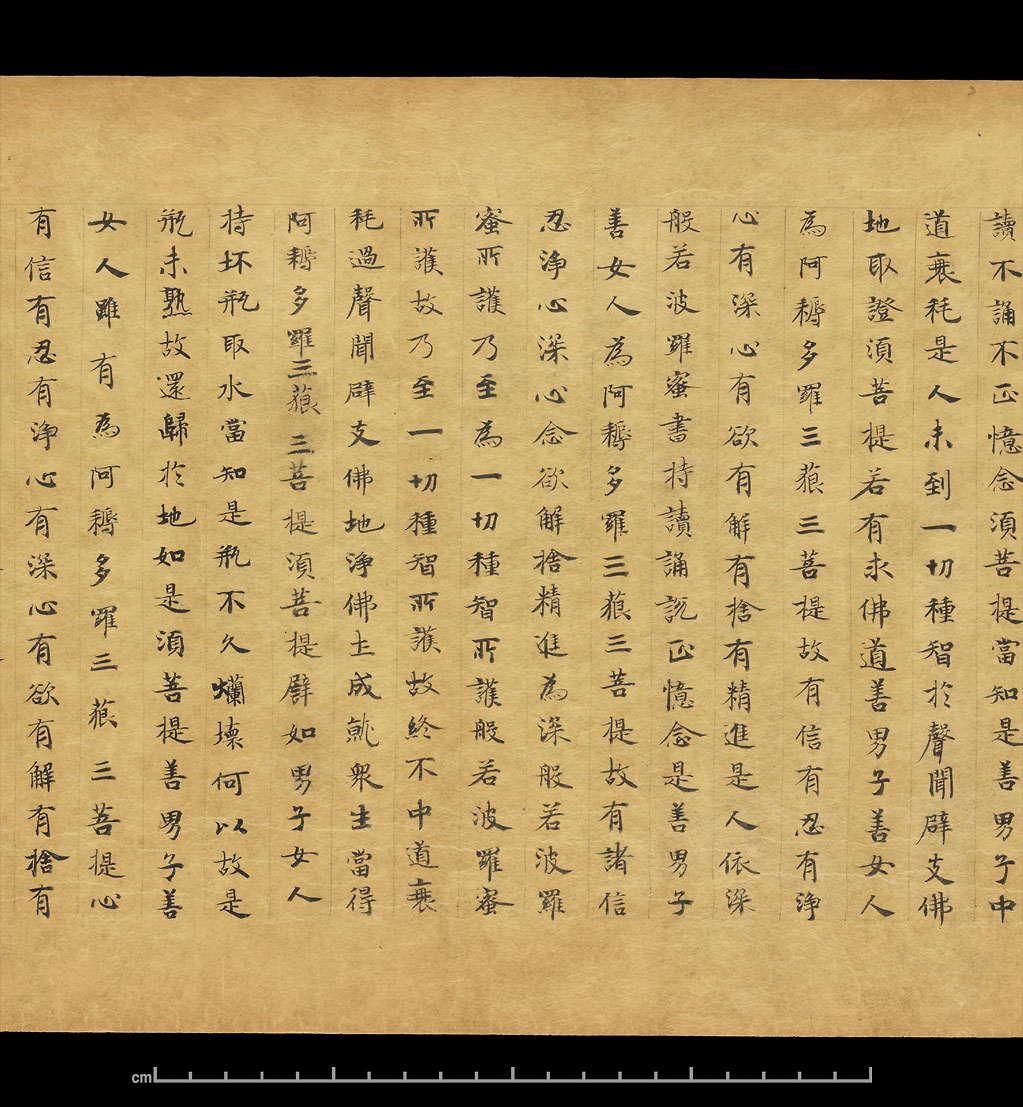 讀不誦不正憶念須菩提當知是善男子中
道衰秏是人未到一切種智於聲聞辟支佛
地取證須菩提若有求佛道善男子善女人
為阿耨多羅三藐三菩提故有信有忍有淨
心有深心有欲有解有捨有精進是人依深
般若波羅蜜書持讀誦說正憶念是善男子
善女人為阿耨多羅三藐三菩提故有諸信
忍淨心深心念欲解捨精進為深般若波羅
蜜所護乃至為一切種智所護般若波羅蜜
所護故乃至一切種智所護故終不中道衰
秏過聲聞辟支佛地淨佛土成就眾生當得
阿耨多羅三藐三菩提須菩提譬如男子女人
持坏瓶取水當知是瓶不久爛壞何以故是
瓶未熟故還歸於地如是須菩提善男子善
女人雖有為阿耨多羅三藐三菩提心
有信有忍有淨心有深心有欲有解有捨有